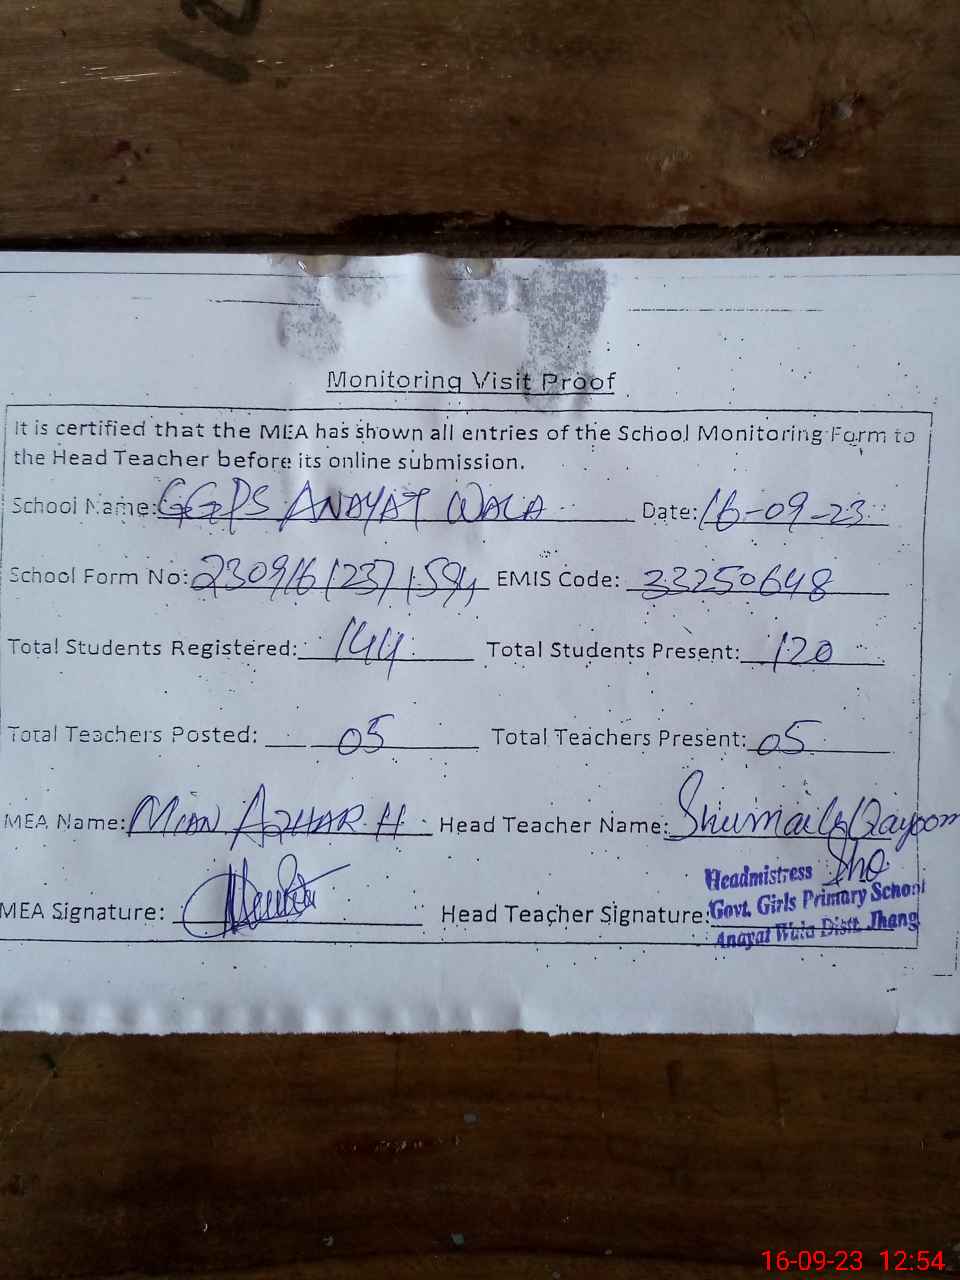 12
Monitoring Visit Proof
It is certified that the MEA has shown all entries of the School Monitoring Form to
the Head Teacher before its online submission.
School Name: GGPS ANAYAT WALA Date: 16-09-23
School Form No: 23091612371594 EMIS Code: 33250648
Total Students Registered: 144 Total Students Present: 120
Total Teachers Posted: 05 Total Teachers Present: 05
MEA Name: MIAN AZHAR H Head Teacher Name: Shumaila Qayoom
MEA Signature: Head Teacher Signature: Sho
Headmistress
Govt. Girls Primary School
Anayat Wala Distt. Jhang
16-09-23 12:54